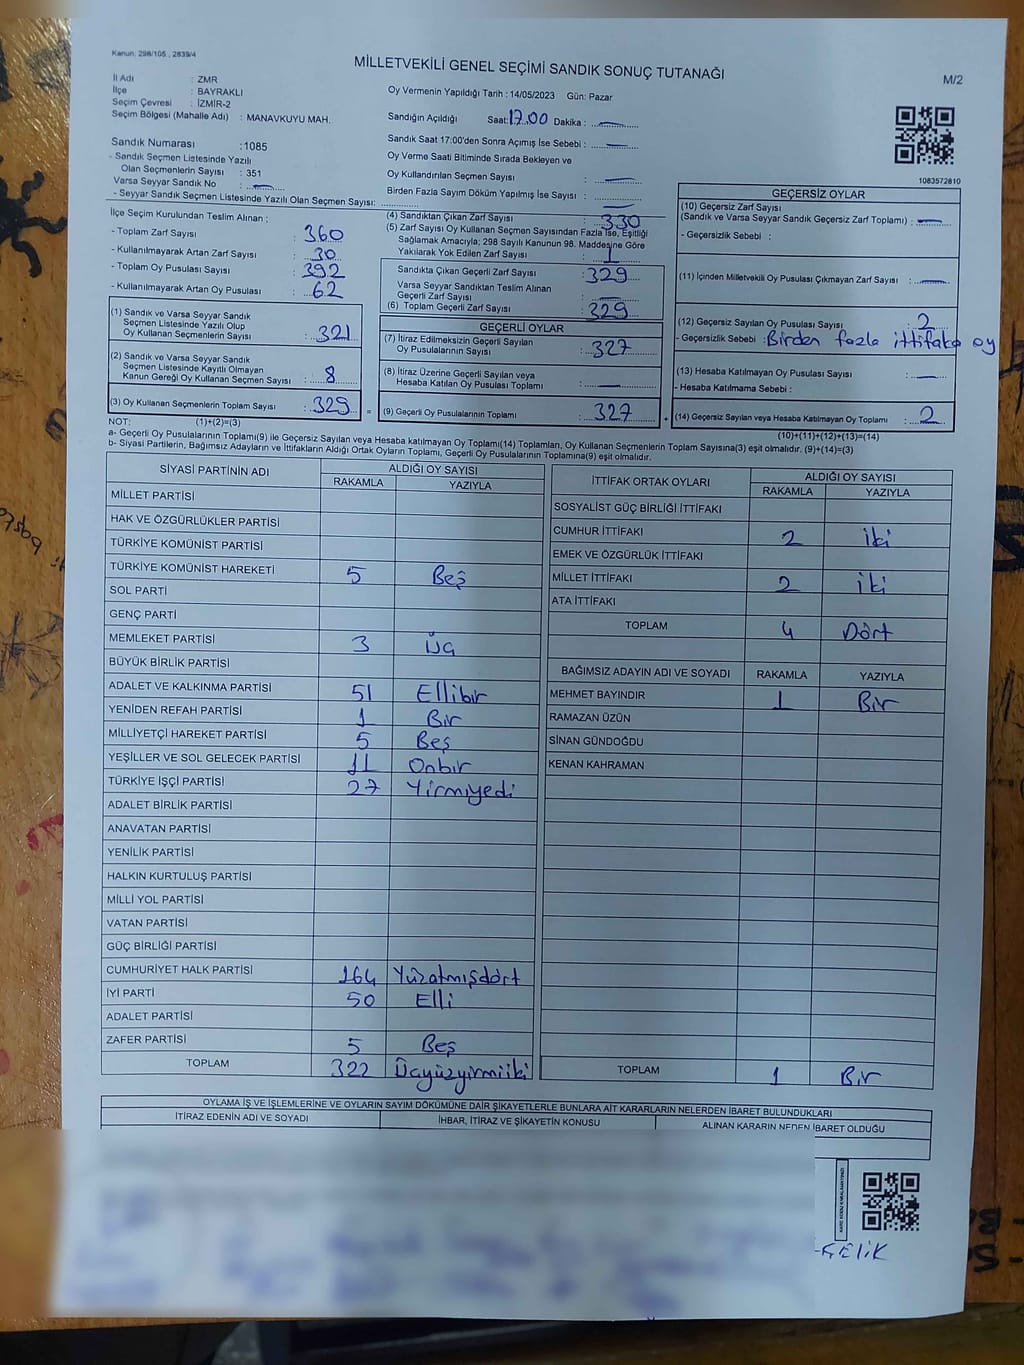 Kanun: 298/105 , 2839/4
MİLLETVEKİLİ GENEL SEÇİMİ SANDIK SONUÇ TUTANAĞI
M/2
İl Adı : ZMR
İlçe : BAYRAKLI
Seçim Çevresi : İZMİR-2
Seçim Bölgesi (Mahalle Adı) : MANAVKUYU MAH.
Sandık Numarası :1085
- Sandık Seçmen Listesinde Yazılı
Olan Seçmenlerin Sayısı : 351
Varsa Seyyar Sandık No : —
- Seyyar Sandık Seçmen Listesinde Yazılı Olan Seçmen Sayısı:
Oy Vermenin Yapıldığı Tarih : 14/05/2023 Gün: Pazar
Sandığın Açıldığı Saat: 17.00 Dakika : —
Sandık Saat 17:00'den Sonra Açımış İse Sebebi : —
Oy Verme Saati Bitiminde Sırada Bekleyen ve
Oy Kullandırılan Seçmen Sayısı : —
Birden Fazla Sayım Döküm Yapılmış İse Sayısı : —
1083572810
İlçe Seçim Kurulundan Teslim Alınan :
- Toplam Zarf Sayısı : 360
- Kullanılmayarak Artan Zarf Sayısı : 30
- Toplam Oy Pusulası Sayısı : 392
- Kullanılmayarak Artan Oy Pusulası : 62
(1) Sandık ve Varsa Seyyar Sandık
Seçmen Listesinde Yazılı Olup
Oy Kullanan Seçmenlerin Sayısı : 321
(2) Sandık ve Varsa Seyyar Sandık
Seçmen Listesinde Kayıtlı Olmayan
Kanun Gereği Oy Kullanan Seçmen Sayısı : 8
(3) Oy Kullanan Seçmenlerin Toplam Sayısı : 329
(4) Sandıktan Çıkan Zarf Sayısı : 330
(5) Zarf Sayısı Oy Kullanan Seçmen Sayısından Fazla İse, Eşitliği
Sağlamak Amacıyla; 298 Sayılı Kanunun 98. Maddesine Göre
Yakılarak Yok Edilen Zarf Sayısı : 1
Sandıkta Çıkan Geçerli Zarf Sayısı : 329
Varsa Seyyar Sandıktan Teslim Alınan
Geçerli Zarf Sayısı : —
(6) Toplam Geçerli Zarf Sayısı : 329
GEÇERLİ OYLAR
(7) İtiraz Edilmeksizin Geçerli Sayılan
Oy Pusulalarının Sayısı : 327
(8) İtiraz Üzerine Geçerli Sayılan veya
Hesaba Katılan Oy Pusulası Toplamı : —
= (9) Geçerli Oy Pusulalarının Toplamı : 327 +
GEÇERSİZ OYLAR
(10) Geçersiz Zarf Sayısı
(Sandık ve Varsa Seyyar Sandık Geçersiz Zarf Toplamı) : —
- Geçersizlik Sebebi :
(11) İçinden Milletvekili Oy Pusulası Çıkmayan Zarf Sayısı : —
(12) Geçersiz Sayılan Oy Pusulası Sayısı : 2
- Geçersizlik Sebebi : Birden fazla ittifaka oy
(13) Hesaba Katılmayan Oy Pusulası Sayısı : —
- Hesaba Katılmama Sebebi :
(14) Geçersiz Sayılan veya Hesaba Katılmayan Oy Toplamı : 2
NOT: (1)+(2)=(3)
(10)+(11)+(12)+(13)=(14)
a- Geçerli Oy Pusulalarının Toplamı(9) ile Geçersiz Sayılan veya Hesaba katılmayan Oy Toplamı(14) Toplamları, Oy Kullanan Seçmenlerin Toplam Sayısına(3) eşit olmalıdır. (9)+(14)=(3)
b- Siyasi Partilerin, Bağımsız Adayların ve İttifakların Aldığı Ortak Oyların Toplamı, Geçerli Oy Pusulalarının Toplamına(9) eşit olmalıdır.
SİYASİ PARTİNİN ADI ALDIĞI OY SAYISI
RAKAMLA YAZIYLA
MİLLET PARTİSİ
HAK VE ÖZGÜRLÜKLER PARTİSİ
TÜRKİYE KOMÜNİST PARTİSİ
TÜRKİYE KOMÜNİST HAREKETİ 5 Beş
SOL PARTİ
GENÇ PARTİ
MEMLEKET PARTİSİ 3 Üç
BÜYÜK BİRLİK PARTİSİ
ADALET VE KALKINMA PARTİSİ 51 Ellibir
YENİDEN REFAH PARTİSİ 1 Bir
MİLLİYETÇİ HAREKET PARTİSİ 5 Beş
YEŞİLLER VE SOL GELECEK PARTİSİ 11 Onbir
TÜRKİYE İŞÇİ PARTİSİ 27 Yirmiyedi
ADALET BİRLİK PARTİSİ
ANAVATAN PARTİSİ
YENİLİK PARTİSİ
HALKIN KURTULUŞ PARTİSİ
MİLLİ YOL PARTİSİ
VATAN PARTİSİ
GÜÇ BİRLİĞİ PARTİSİ
CUMHURİYET HALK PARTİSİ 164 Yüzatmışdört
İYİ PARTİ 50 Elli
ADALET PARTİSİ
ZAFER PARTİSİ 5 Beş
TOPLAM 322 Üçyüzyirmiiki
İTTİFAK ORTAK OYLARI ALDIĞI OY SAYISI
RAKAMLA YAZIYLA
SOSYALİST GÜÇ BİRLİĞİ İTTİFAKI
CUMHUR İTTİFAKI 2 İki
EMEK VE ÖZGÜRLÜK İTTİFAKI
MİLLET İTTİFAKI 2 İki
ATA İTTİFAKI
TOPLAM 4 Dört
BAĞIMSIZ ADAYIN ADI VE SOYADI RAKAMLA YAZIYLA
MEHMET BAYINDIR 1 Bir
RAMAZAN ÜZÜN
SİNAN GÜNDOĞDU
KENAN KAHRAMAN
TOPLAM 1 Bir
OYLAMA İŞ VE İŞLEMLERİNE VE OYLARIN SAYIM DÖKÜMÜNE DAİR ŞİKAYETLERLE BUNLARA AİT KARARLARIN NELERDEN İBARET BULUNDUKLARI
İTİRAZ EDENİN ADI VE SOYADI İHBAR, İTİRAZ VE ŞİKAYETİN KONUSU ALINAN KARARIN NEDEN İBARET OLDUĞU
ÇELİK